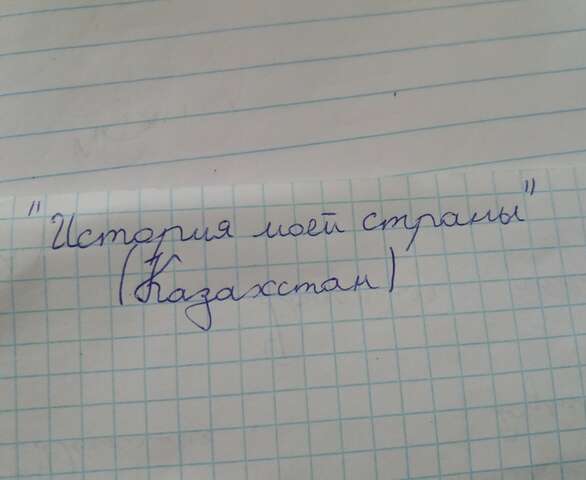 "История моей страны"
(Казахстан)